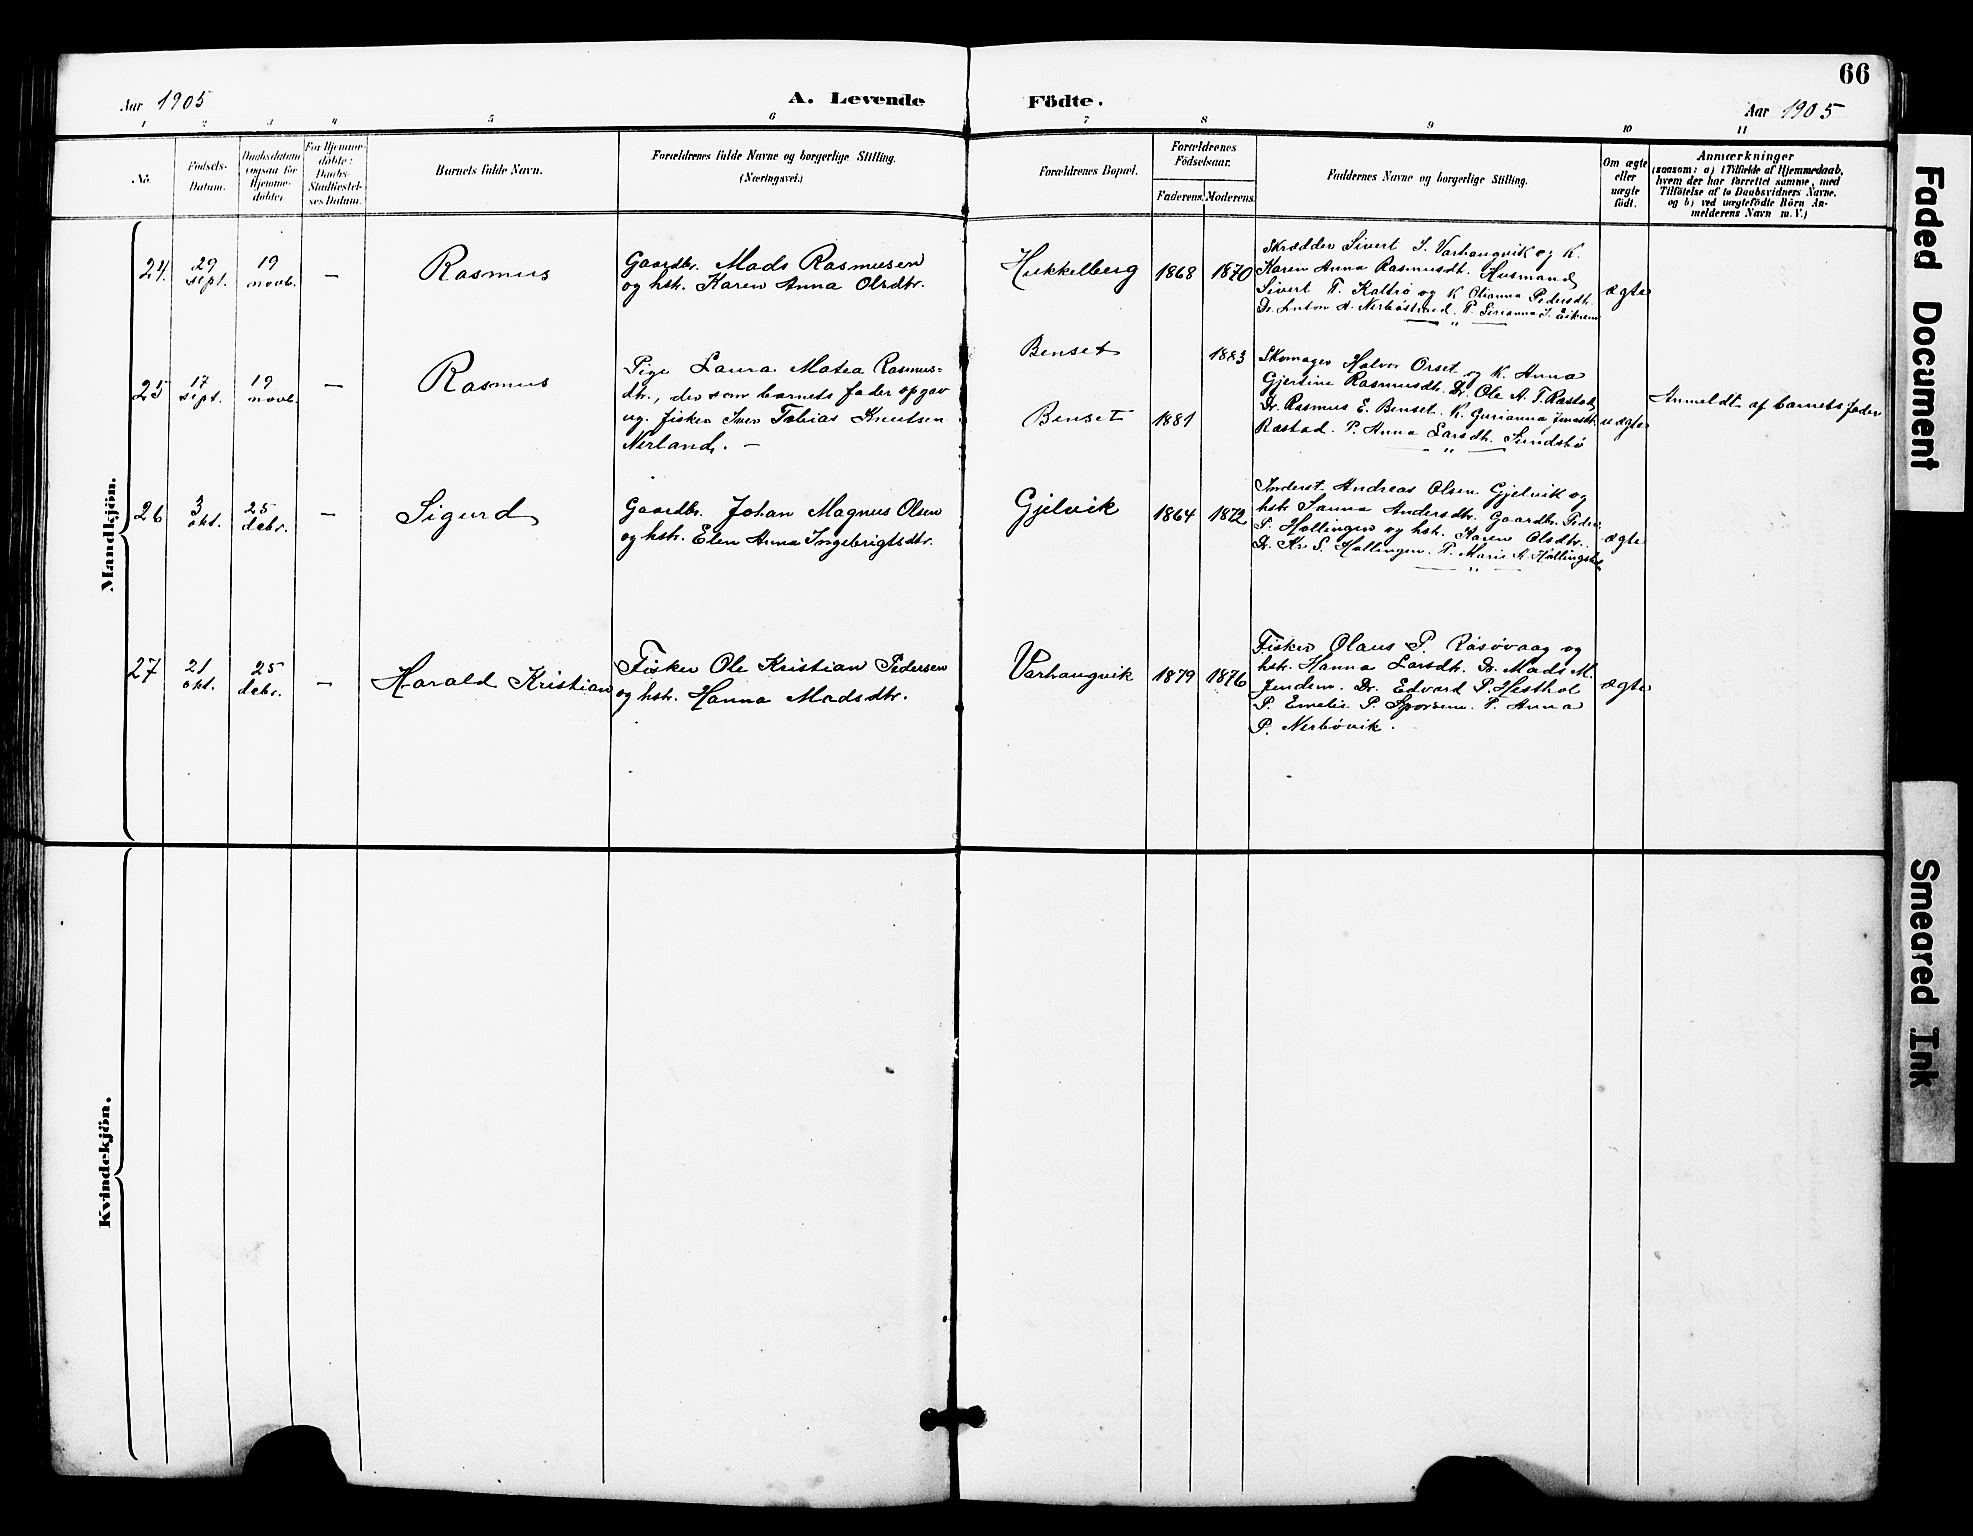 66
Aar 1905
A. Levende
Födte.
Aar 1905
1 2 3 4 5 6 7 8 9 10 11
No.
Födsels-
Datum.
Daabsdatum
(ogsaa for
Hjemme-
döbte)
For Hjemme-
döbte:
Daabs-
Stadfæstel-
ses Datum.
Barnets fulde Navn.
Forældrenes fulde Navne og borgerlige Stilling.
(Næringsvei.)
Forældrenes Bopæl.
Forældrenes
Födselsaar.
Faderens. Moderens.
Faddernes Navne og borgerlige Stilling.
Om ægte
eller
uægte
født.
Anmærkninger
(saasom: a) i Tilfælde af Hjemmedaab,
hvem der har forrettet samme, med
Tilföielse af to Daabsvidners Navne,
og b) ved uægtefödte Börn An-
melderens Navn m. V.)
Mandkjön.
24. 29 sept. 19 novb. — Rasmus
Gaardbr. Mads Rasmusen
og hstr. Karen Anna Olsdtr.
Hukkelberg 1868 1870
Skrædder Sivert S. Varhaugvik og K.
Karen Anna Rasmusdtr. Husmand
Sivert T. Kaltrø og K. Olianna Pedersdtr.
Dr. Anton A. Nerbøstand. P. Sirianna J. Eikrem
— " —
ægte
25 17 sept. 19 novb. — Rasmus
Pige Laura Matea Rasmus-
dtr., der som barnets fader opgav
ug. fisker Iver Tobias Knutsen
Nerland. —
Benset 1883
Benset 1881
Skomager Halvor Orset og K. Anna
Gjertine Rasmusdtr. Dr. Ole A. T. Rastad
Dr. Rasmus E. Benset. K. Gurianna Jensdtr.
Rastad. P. Anna Larsdtr. Sundsbø
— " —
uægte
Anmeldt af barnets fader
26 3 okt. 25 debr. — Sigurd
Gaardbr. Johan Magnus Olsen
og hstr. Elen Anna Ingebrigtsdtr.
Gjelvik 1864 1872
Inderst Andreas Olsen Gjelvik og
hstr. Sanna Andersdtr. Gaardbr. Peder
P. Hollingen og hstr. Karen Olsdtr.
Dr. Kr. S. Hollingen. P. Marie A. Hollingsdal
— " —
ægte
27 21 okt. 25 debr. — Harald Kristian
Fisker Ole Kristian Pedersen
og hstr. Hanna Madsdtr.
Varhaugvik 1879 1876
Fisker Olaus P. Røsøvaag og
hstr. Hanna Larsdtr. Dr. Mads M.
Jendem. Dr. Edvard P. Hesthol
P. Emelie P. Sporsem. P. Anna
P. Nerbøvik.
ægte
Kvindekjön.
Faded Document
Smeared Ink